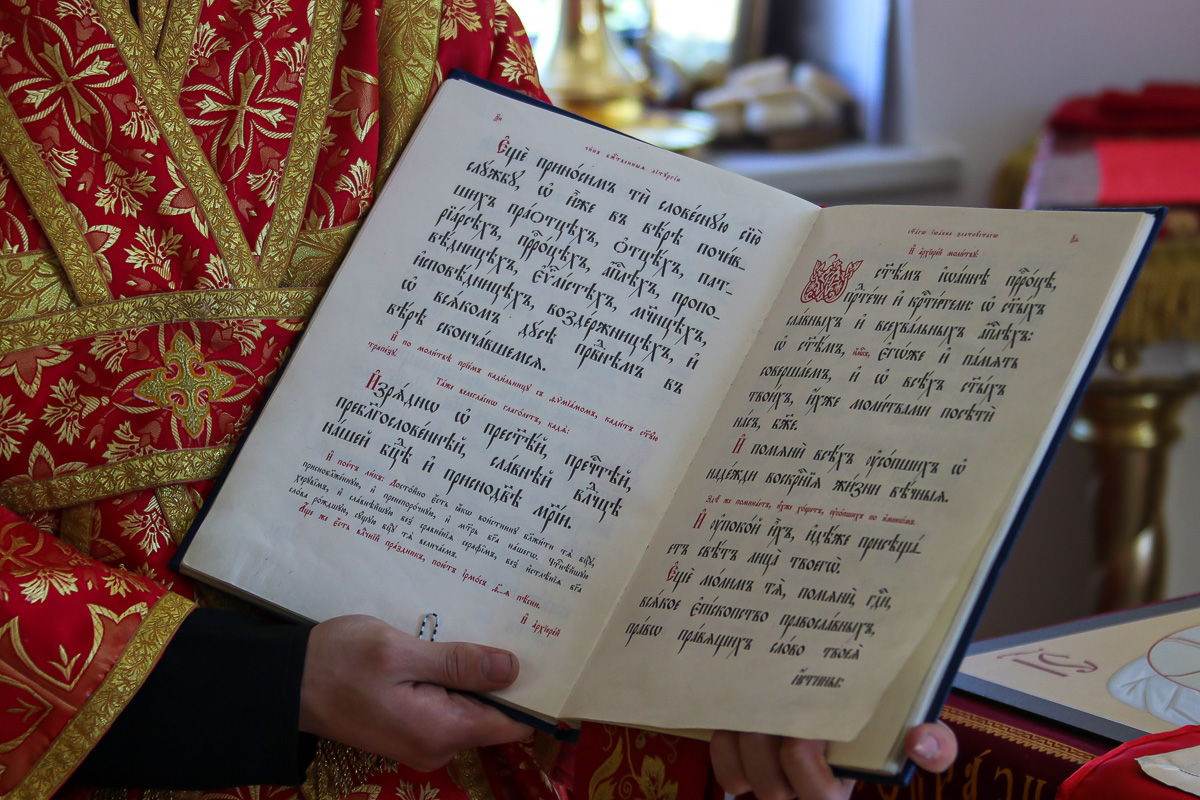 чи́нъ бж҃е́ственныѧ лїтꙋргі́и
Є҆щѐ прино́симъ тѝ слове́снꙋю сїю̀
слꙋ́жбꙋ, ѡ҆ и҆̀же въ вѣ́рѣ почи́в-
шихъ пра́ѻтцѣхъ, ѻ҆тцѣ́хъ, пат-
рїа́рсѣхъ, прⷪ҇ро́цѣхъ, а҆пⷭ҇лѣхъ, пропо-
вѣ́дницѣхъ, є҆ѵⷢ҇лі́стѣхъ, мч҃нцѣхъ,
и҆сповѣ́дницѣхъ, возде́ржницѣхъ, и҆
ѡ҆ всѧ́комъ дꙋ́сѣ првⷣнѣмъ въ
вѣ́рѣ сконча́вшемсѧ.
И҆ по моли́твѣ прїи́мъ кади́льницꙋ съ ѳѷмїа́момъ, кади́тъ ст҃ꙋ́ю
трапе́зꙋ.
Та́же велегла́снѡ глаго́летъ, кадѧ̀:
И҆зрѧ́днѡ ѡ҆ прест҃ѣ́й, пречⷭ҇тѣй,
пребл҃гослове́ннѣй, сла́внѣй влⷣчцѣ
на́шей бцⷣѣ и҆ приснодв҃ѣ мр҃і́и.
И҆ пою́тъ ли́къ: Досто́йно є҆́сть ꙗ҆́кѡ вои́стиннꙋ бл҃жи́ти тѧ̀ бцⷣꙋ,
присноблаже́ннꙋю, и҆ пренепоро́чнꙋю, и҆ мт҃рь бг҃а на́шегѡ. чⷭ҇тнѣ́йшꙋю
херꙋві̑мъ, и҆ сла́внѣйшꙋю без̾ сравне́нїѧ серафі̑мъ, без̾ и҆стлѣ́нїѧ бг҃а
сло́ва ро́ждшꙋю, сꙋ́щꙋю бцⷣꙋ тѧ̀ велича́емъ.
А҆́ще же є҆́сть влⷣчнїй пра́здникъ, пою́тъ і҆рмо́съ ѳ҃-ѧ пѣ́сни.
И҆ а҆рхїере́й
ст҃а́гѡ і҆ѡа́нна златоꙋ́стагѡ
И҆ а҆рхїере́й моли́твꙋ:
Ѡ҆ ст҃ѣ́мъ і҆ѡа́ннѣ прⷪ҇ро́цѣ,
прⷣте́чи и҆ крⷭ҇ти́тели: ѡ҆ ст҃ы́хъ
сла́вныхъ и҆ всехва́льныхъ а҆пⷭ҇лѣхъ:
ѡ҆ ст҃ѣ́мъ, и҆́м​к, є҆гѡ́же и҆ па́мѧть
соверша́емъ, и҆ ѡ҆ всѣ́хъ ст҃ы́хъ
твои́хъ, и҆́хже моли́твами посѣтѝ
на́съ, бж҃е.
И҆ помѧнѝ всѣ́хъ ᲂу҆со́пшихъ ѡ҆
наде́жди воскрⷭ҇нїѧ жи́зни вѣ́чныѧ.
Здѣ̀ же помина́етъ, и҆̀хже хо́щетъ, ᲂу҆со́пшихъ по и҆мене́мъ.
И҆ ᲂу҆поко́й и҆̀хъ, и҆дѣ́же присѣща́-
етъ свѣ́тъ лица̀ твоегѡ̀.
Є҆щѐ мо́лимъ тѧ̀, помѧнѝ, гдⷭ҇и,
всѧ́кое є҆пі́скопство правосла́вныхъ,
пра́вѡ пра́вѧщихъ сло́во твоеѧ̀
и҆́стины: